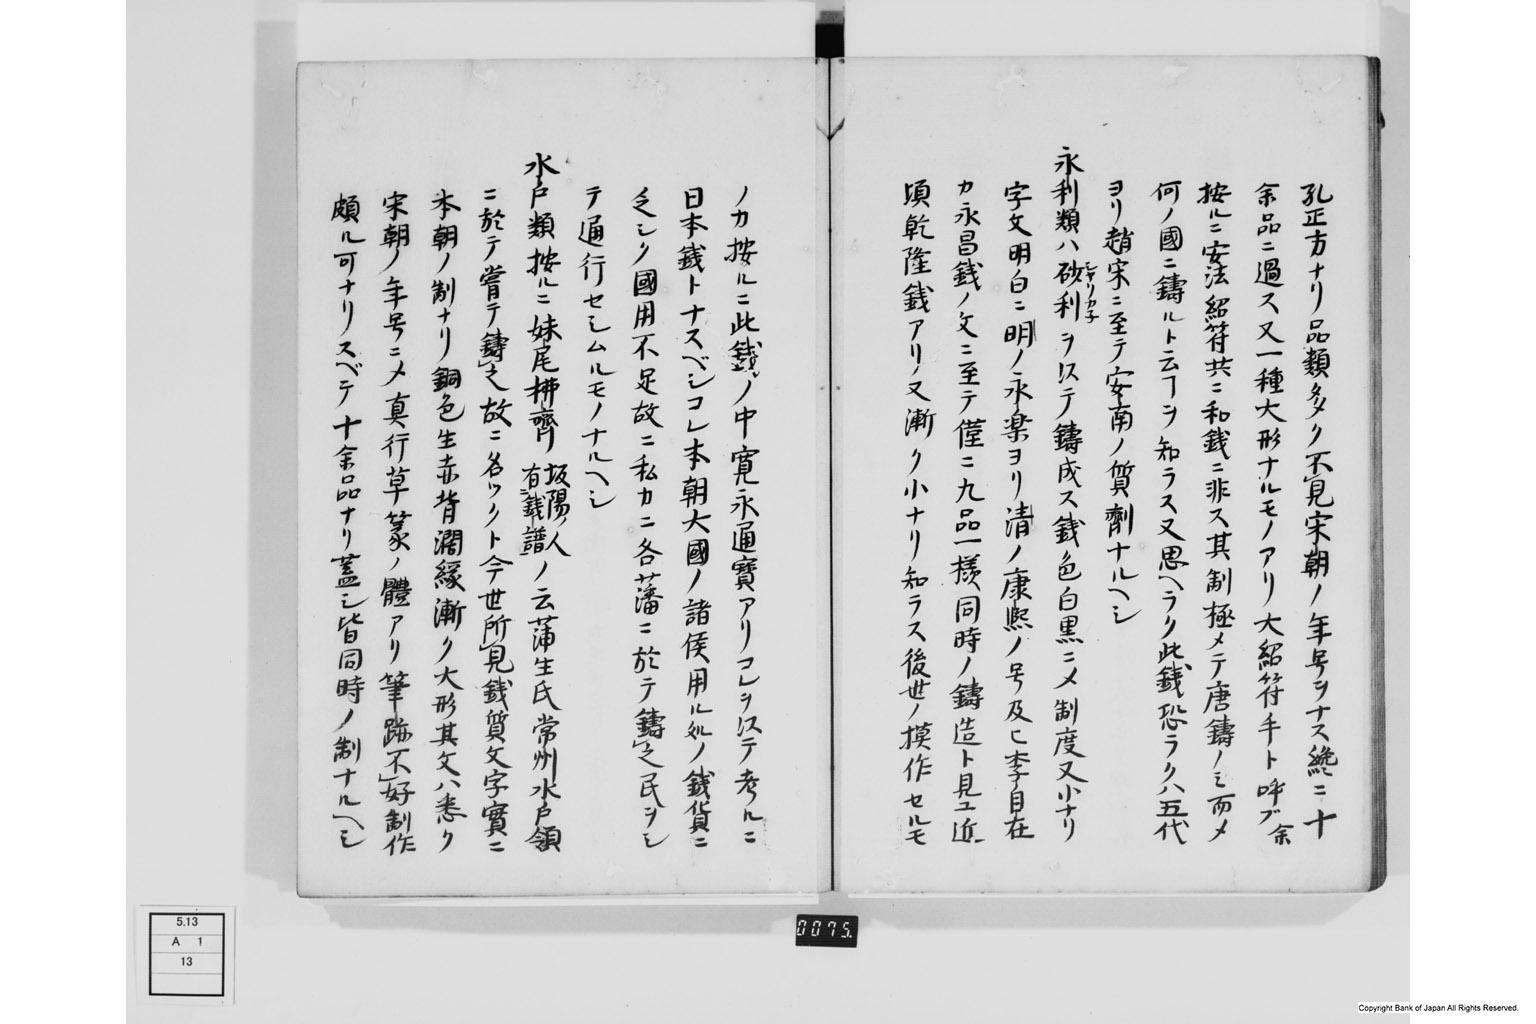 孔正方ナリ品類多ク不見宋朝ノ年号ヲナス纔ニ十
余品ニ過ス又一種大形ナルモノアリ大紹符手ト呼ブ余
按ルニ安法紹符共ニ和銭ニ非ス其制極メテ唐鑄ノミ而メ
何ノ國ニ鑄ルト云ヿヲ知ラス又思ヘラク此銭恐ラクハ五代
ヨリ趙宋ニ至テ安南ノ質劑ナルヘシ
永利類ハ砂利ヲ以テ鑄成ス銭色白黒ニメ制度又小ナリ
ジヤリカネ
字文明白ニ明ノ永楽ヨリ清ノ康熙ノ号及ヒ李自在
カ永昌銭ノ文ニ至テ僅ニ九品一様同時ノ鑄造ト見エ近
頃乾隆銭アリ又漸ク小ナリ知ラス後世ノ摸作セルモ
ノカ按ルニ此銭ノ中寛永通寳アリコレヲ以テ考ルニ
日本銭トナスベシコレ本朝大國ノ諸侯用ル処ノ銭貨ニ
乏シク國用不足故ニ私カニ各藩ニ於テ鑄之民ヲシ
テ通行セシムルモノナルヘシ
水戸類按ルニ妹尾柳齊坂陽ノ人有銭譜ノ云蒲生氏常州水戸領
ニ於テ嘗テ鑄之故ニ名ツクト今世所見銭質文字實ニ
本朝ノ制ナリ銅色生赤背濶縁漸ク大形其文ハ悉ク
宋朝ノ年号ニメ真行草篆ノ體アリ筆跡不好制作
頗ル可ナリスベテ十余品ナリ蓋シ皆同時ノ制ナルヘシ
0075.
5.13
A 1
13
Copyright Bank of Japan All Rights Reserved.